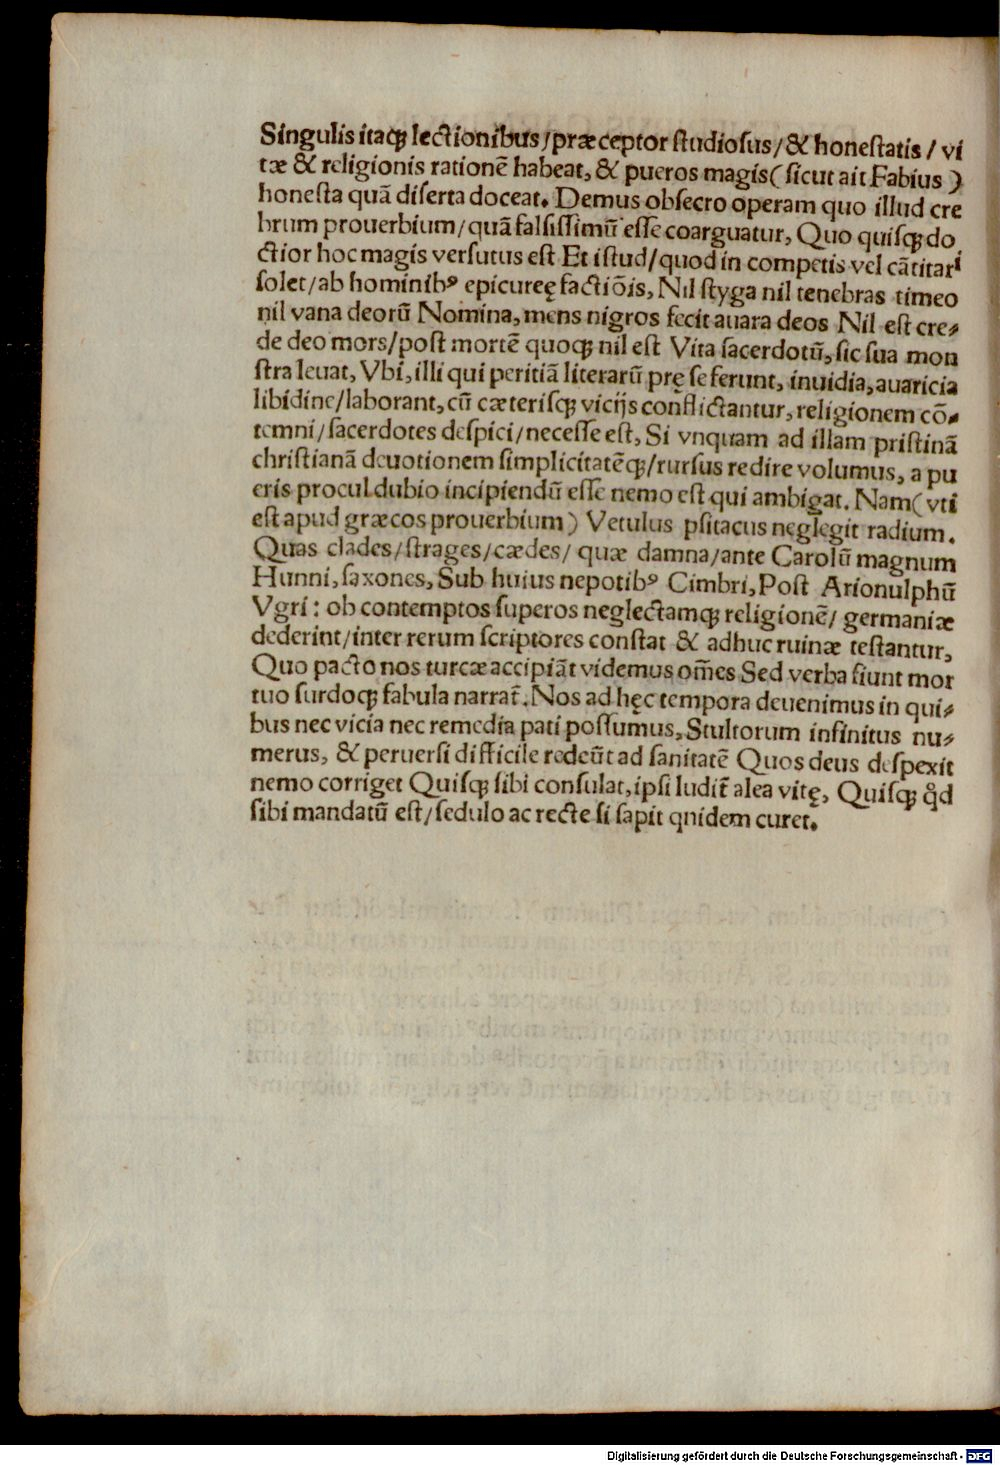 Singulis itaqꝫ lectionibus/præceptor ſtudioſus/& honeſtatis / vi
tæ & religionis rationẽ habeat, & pueros magis( ſicut ait Fabius )
honeſta quã diſerta doceat. Demus obſecro operam quo illud cre
brum prouerbium/quã falſiſſimũ eſſe coarguatur, Quo quiſqꝫ do
ctior hoc magis verſutus eſt Et iſtud/quod in competis vel cãtitari
ſolet/ab hominibꝰ epicureę factiõis, Nil ſtyga nil tenebras timeo
nil vana deorũ Nomina, mens nigros fecit auara deos Nil eſt cre⸗
de deo mors/poſt mortẽ quoqꝫ nil eſt Vita ſacerdotũ, ſic ſua mon
ſtra leuat, Vbi, illi qui peritiã literarũ prę ſe ferunt, inuidia, auaricia
libidine/laborant, cũ cæteriſqꝫ vicijs conflictantur, religionem cõ⸗
temni/ſacerdotes deſpici/neceſſe eſt, Si vnquam ad illam priſtinã
chriſtianã deuotionem ſimplicitatẽqꝫ/rurſus redire volumus, a pu
eris procul dubio incipiendũ eſſe nemo eſt qui ambigat. Nam( vti
eſt apud græcos prouerbium ) Vetulus pſitacus neglegit radium.
Quas clades/ſtrages/cædes/ quæ damna/ante Carolũ magnum
Hunni, ſaxones, Sub huius nepotibꝰ Cimbri, Poſt Arionulphũ
Vgri : ob contemptos ſuperos neglectamqꝫ religionẽ/ germaniæ
dederint/inter rerum ſcriptores conſtat & adhuc ruinæ teſtantur,
Quo pacto nos turcæ accipiãt videmus om̃es Sed verba fiunt mor
tuo ſurdoqꝫ fabula narrat̃. Nos ad hęc tempora deuenimus in qui⸗
bus nec vicia nec remedia pati poſſumus, Stultorum infinitus nu⸗
merus, & peruerſi difficile redeũt ad ſanitatẽ Quos deus deſpexit
nemo corriget Quiſqꝫ ſibi conſulat, ipſi ludit̃ alea vitę, Quiſqꝫ qͦd
ſibi mandatũ eſt/ſedulo ac recte ſi ſapit qnidem curet.
Digitalisierung gefördert durch die Deutsche Forschungsgemeinschaft - DFG